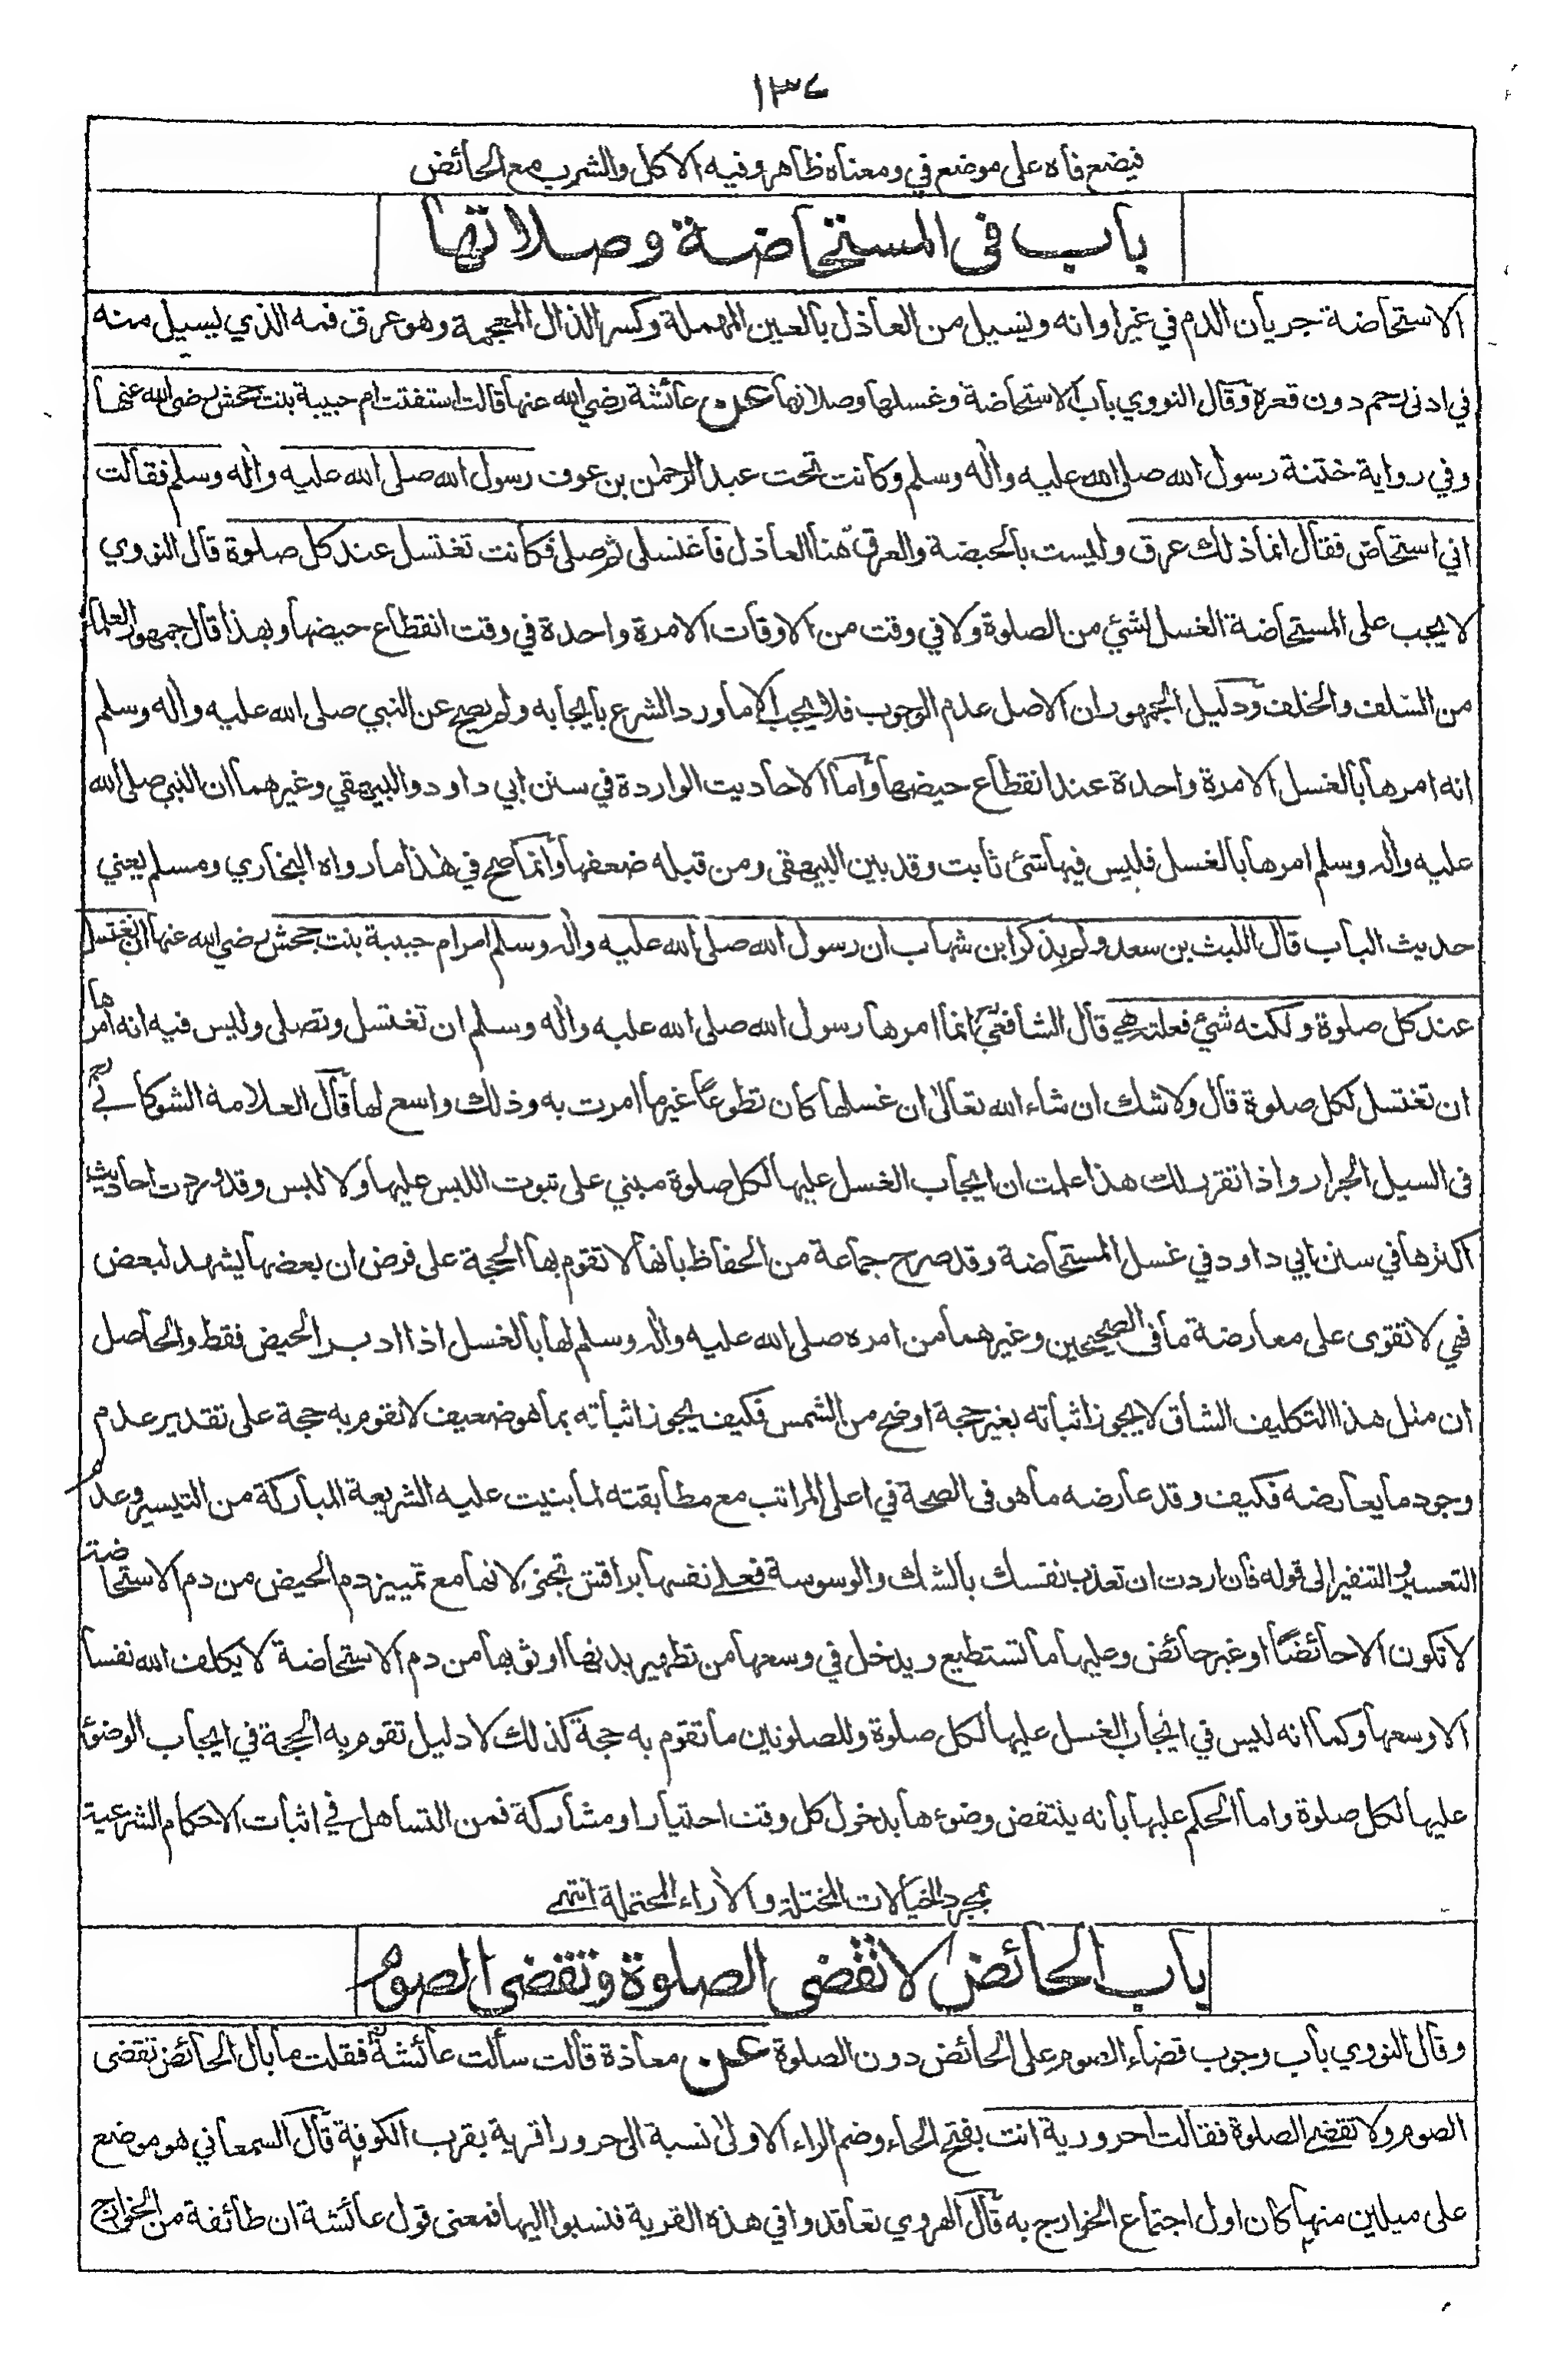 ١٣٤
فيضع فاه على موضع في ومعناه ظاهر وفيه الاكل والشرب مع الحائض
باب فى المستحاضة وصلاتها
الاستحاضة جريان الدم في غير اوانه ويسيل من العاذل بالعين المهملة وكسر الذال المعجمة وهو عرق فمه الذي يسيل منه
في ادنى رحم دون قعره وقال النووي باب الاستحاضة وغسلها وصلاتها عن عائشة رضي الله عنها قالت استفتت ام حبيبة بنت جحش رضي الله عنها
وفي رواية ختنة رسول الله صلى الله عليه واله وسلم وكانت تحت عبد الرحمن بن عوف رسول الله صلى الله عليه واله وسلم فقالت
اني استحاض فقال انما ذلك عرق وليست بالحيضة والعرق هنا العاذل فاغتسلى ثم صلى فكانت تغتسل عند كل صلوة قال النووي
لا يجب على المستحاضة الغسل لشئ من الصلوة ولا في وقت من الاوقات الا مرة واحدة في وقت انقطاع حيضها وبهذا قال جمهور العلماء
من السلف والخلف ودليل الجمهور ان الاصل عدم الوجوب فلا يجب الا ما ورد الشرع بايجابه ولم يصح عن النبي صلى الله عليه واله وسلم
انه امرها بالغسل الا مرة واحدة عند انقطاع حيضها واما الاحاديث الواردة في سنن ابي داود والبيهقي وغيرهما ان النبي صلى الله
عليه واله وسلم امرها بالغسل فليس فيها شئ ثابت وقد بين البيهقى ومن قبله ضعفها وانما صح في هذا ما رواه البخاري ومسلم يعني
حديث الباب قال الليث بن سعد ولم يذكر ابن شهاب ان رسول الله صلى الله عليه واله وسلم امر ام حبيبة بنت جحش رضي الله عنها ان تغتسل
عند كل صلوة ولكنه شئ فعلته هي قال الشافعي انما امرها رسول الله صلى الله عليه واله وسلم ان تغتسل وتصلى وليس فيه انه امرها
ان تغتسل لكل صلوة قال ولا شك ان شاء الله تعالى ان غسلها كان تطوعا غير ما امرت به وذلك واسع لها قال العلامة الشوكاني رح
فى السيل الجرار واذا تقرر لك هذا علمت ان ايجاب الغسل عليها لكل صلوة مبني على ثبوت اللبس عليها ولا لبس وقد وردت احاديث
اكثرها في سنن ابي داود في غسل المستحاضة وقد صرح جماعة من الحفاظ بانها لا تقوم بها الحجة على فرض ان بعضها يشهد لبعض
فهي لا تقوى على معارضة ما فى الصحيحين وغيرهما من امره صلى الله عليه واله وسلم لها بالغسل اذا ادبر الحيض فقط والحاصل
ان مثل هذا التكليف الشاق لا يجوز اثباته بغير حجة اوضح من الشمس فكيف يجوز اثباته بما هو ضعيف لا تقوم به حجة على تقدير عدم
وجود ما يعارضه فكيف وقد عارضه ما هو فى الصحة في اعلى المراتب مع مطابقته لما بنيت عليه الشريعة المباركة من التيسير وعدم
التعسير والتنفير الى قوله فان اردت ان تعذب نفسك بالشك والوسوسة فعلى نفسها براقش تجنى لانها مع تمييز دم الحيض من دم الاستحاضة
لا تكون الا حائضا او غير حائض وعليها ما تستطيع ويدخل في وسعها من تطهير بدنها او ثوبها من دم الاستحاضة لا يكلف الله نفسا
الا وسعها وكما انه ليس في ايجاب الغسل عليها لكل صلوة وللصلوتين ما تقوم به حجة كذلك لا دليل تقوم به الحجة في ايجاب الوضوء
عليها لكل صلوة واما الحكم عليها بانه ينتقض وضوءها بدخول كل وقت اختيارا او مشاركة فمن التساهل في اثبات الاحكام الشرعية
بمجرد الخيالات المختلة والاراء المحتملة انتهى
باب الحائض لا تقضى الصلوة وتقضى الصوم
وقال النووي باب وجوب قضاء الصوم على الحائض دون الصلوة عن معاذة قالت سألت عائشة رض فقلت ما بال الحائض تقضى
الصوم ولا تقضى الصلوة فقالت احرورية انت بفتح الحاء وضم الراء الاولى نسبة الى حرورا قرية بقرب الكوفة قال السمعاني هو موضع
على ميلين منها كان اول اجتماع الخوارج به قال الهروي تعاقدوا في هذه القرية فنسبوا اليها فمعنى قول عائشة ان طائفة من الخوارج